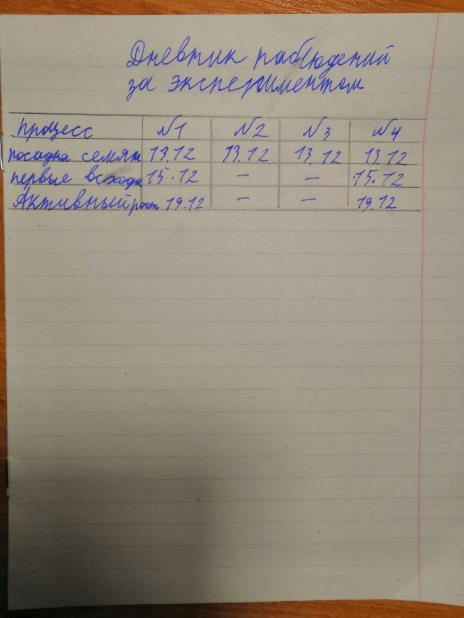 Дневник наблюдений
за экспериментом
процесс №1 №2 №3 №4
посадка семян 13.12 13.12 13.12 13.12
первые всходы 15.12 – – 15.12
Активный рост 19.12 – – 19.12